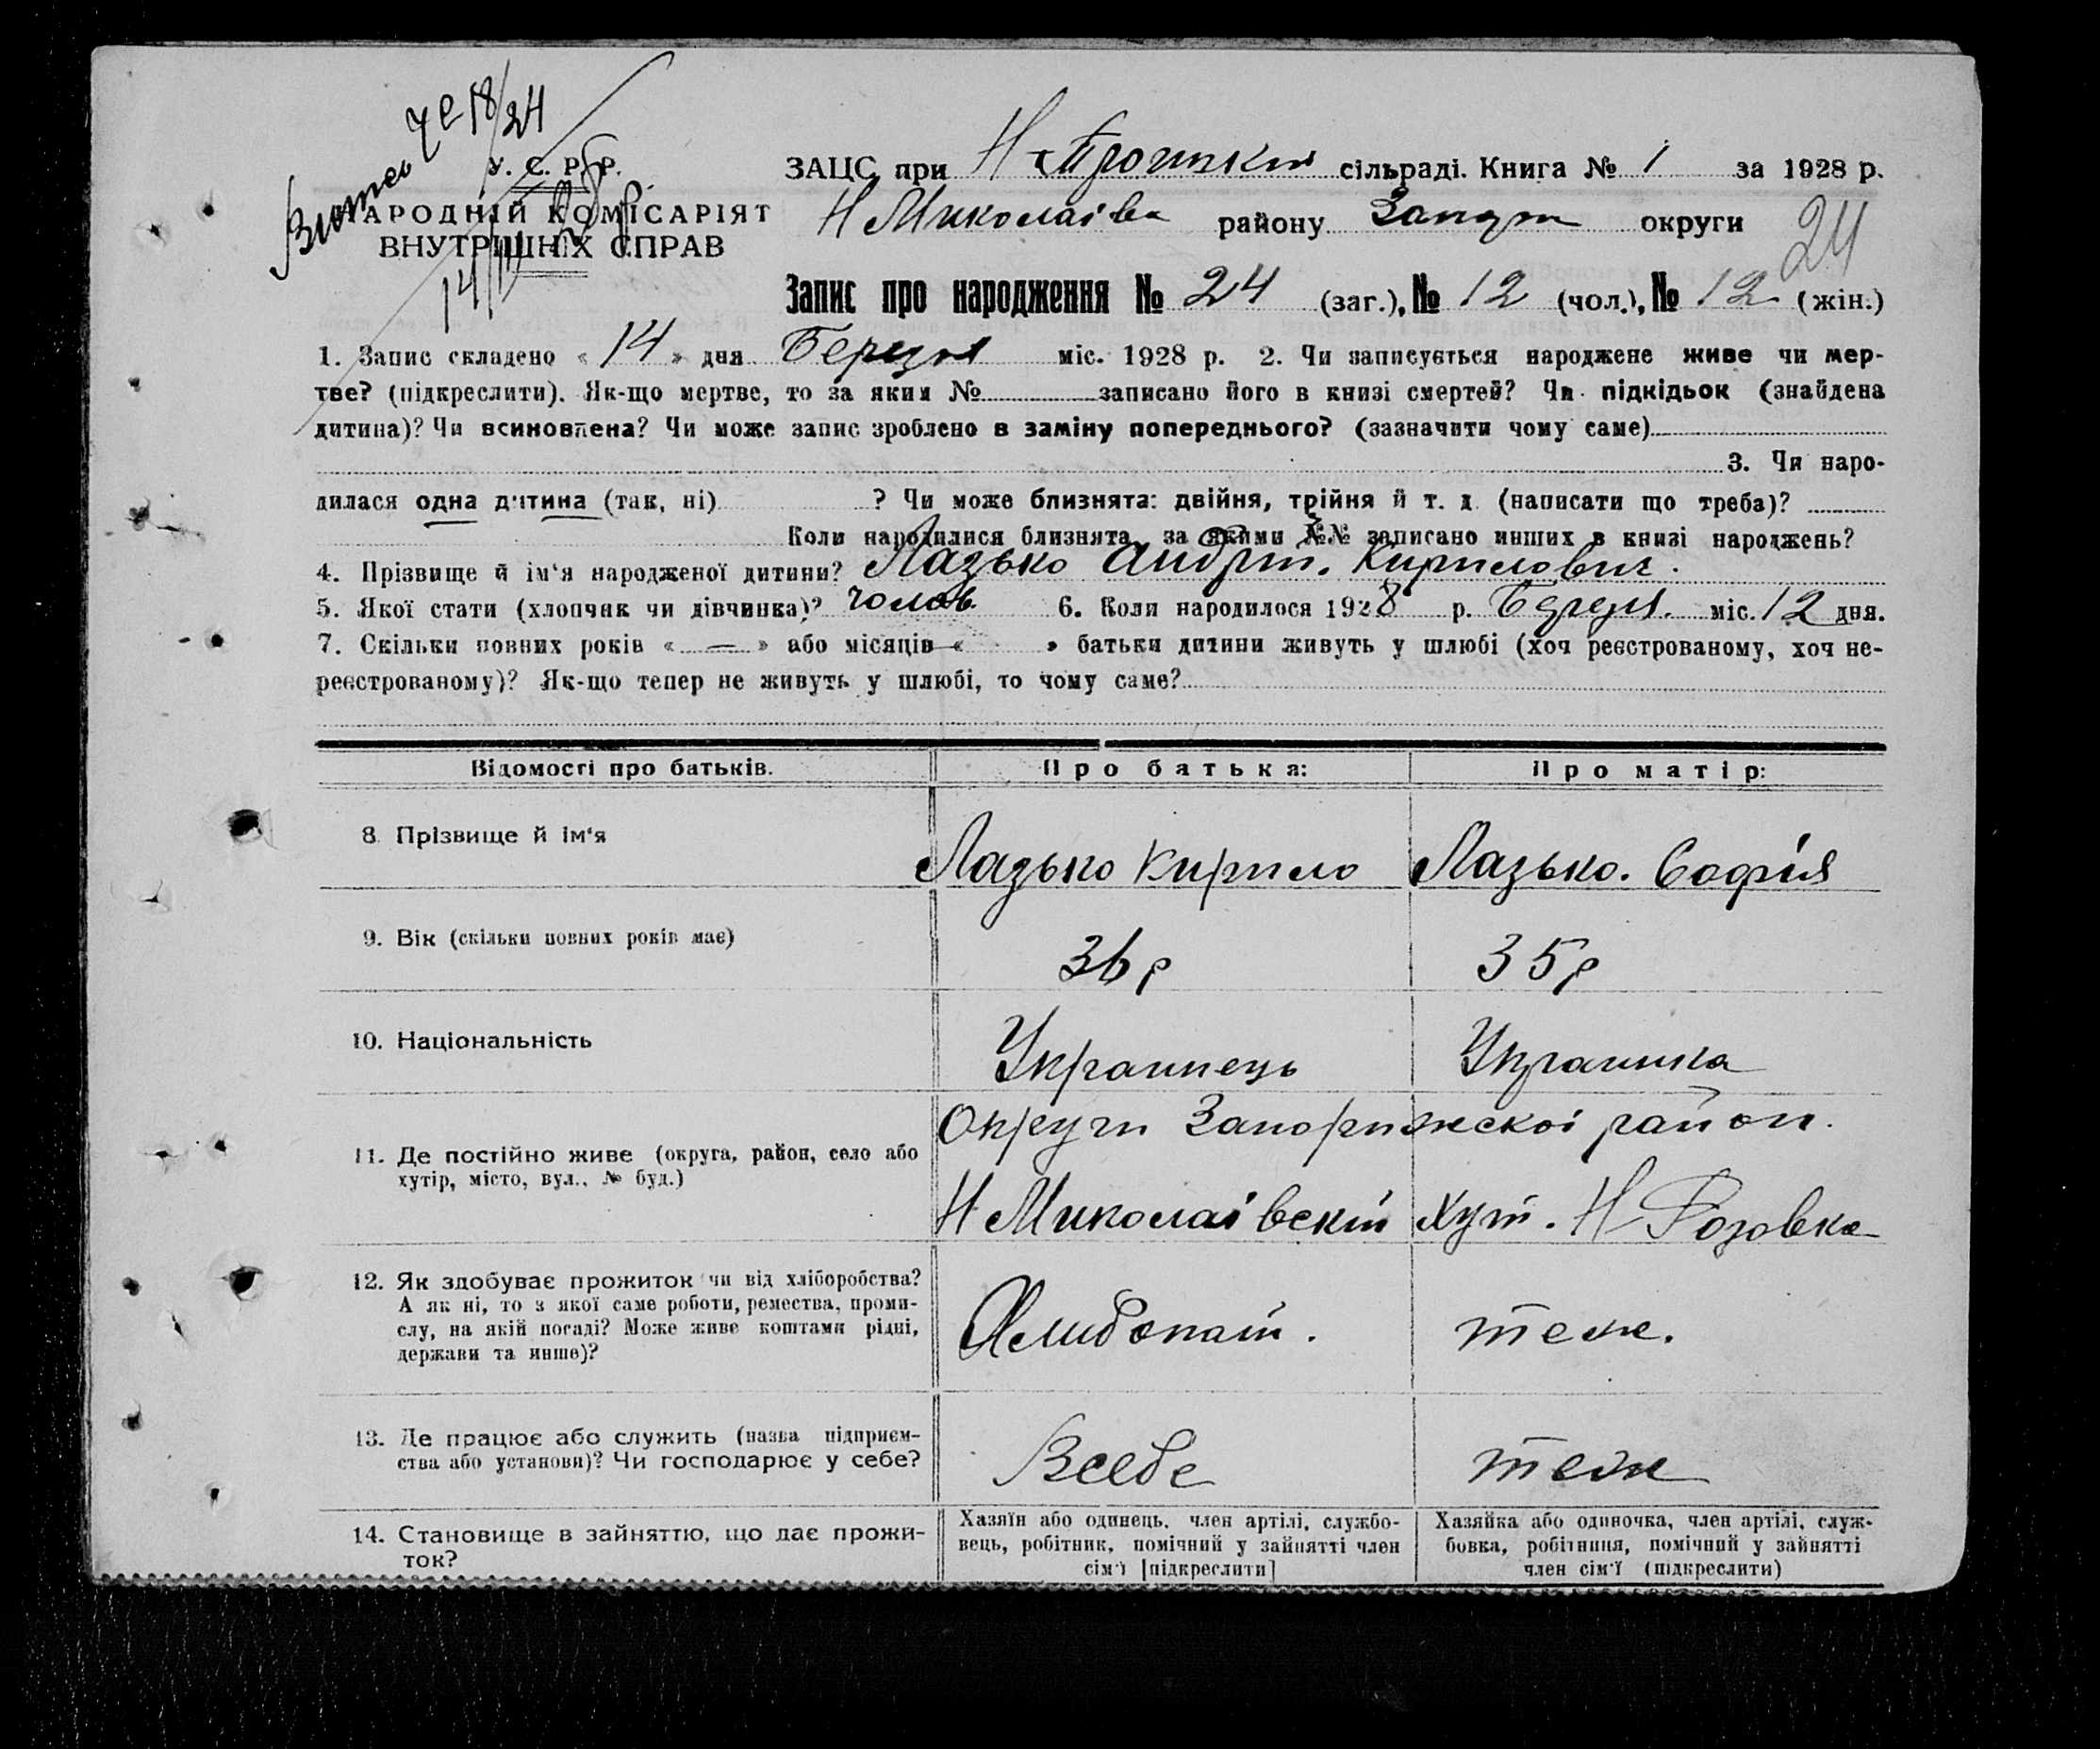 18/24
У. С. Р. Р.
НАРОДНІЙ КОМІСАРІЯТ
ВНУТРІШНІХ СПРАВ
ЗАЦС при Н сільраді. Книга № 1 за 1928 р.
Н Миколаівс району Запор округи
24
Запис про народження № 24 (заг.), № 12 (чол.), № 12 (жін.)
1. Запис складено « 14 » дня Березня міс. 1928 р. 2. Чи записується народжене живе чи мер-
тве? (підкреслити). Як-що мертве, то за яким № записано його в книзі смертей? Чи підкідьок (знайдена
дитина)? Чи всиновлена? Чи може запис зроблено в заміну попереднього? (зазначити чому саме)
3. Чи наро-
дилася одна дитина (так, ні) ? Чи може близнята: двійня, трійня й т. д. (написати що треба)?
Коли народилися близнята, за якими №№ записано инших в книзі народжень?
4. Прізвище й ім‘я народженої дитини? Лазько Андрій. Кирилович.
5. Якої стати (хлопчик чи дівчинка)? чолов. 6. Коли народилося 1928 р. Березня. міс. 12 дня.
7. Скільки повних років « — » або місяців « » батьки дитини живуть у шлюбі (хоч реєстрованому, хоч не-
реєстрованому)? Як-що тепер не живуть у шлюбі, то чому саме?
Відомості про батьків. Про батька: Про матір:
8. Прізвище й ім‘я Лазько Кирило Лазько. Софія
9. Вік (скільки повних років має) 36 р 35 р
10. Національність Украинець Украинка
Округи Запорижскоі район.
11. Де постійно живе (округа, район, село або
хутір, місто, вул., № буд.)
Н Миколаівский Хут. Н Розовка
12. Як здобуває прожиток чи від хліборобства?
А як ні, то з якої саме роботи, ремества, проми-
слу, на якій посаді? Може живе коштами рідні,
держави та инше)?
Хлиборат. теже.
13. Де працює або служить (назва підприєм-
ства або установи)? Чи господарює у себе?
Всебе теже
14. Становище в зайняттю, що дає прожи-
ток?
Хазяїн або одинець, член артілі, службо-
вець, робітник, помічний у зайнятті член
сім‘ї [підкреслити]
Хазяйка або одиночка, член артілі, служ-
бовка, робітниця, помічний у зайнятті
член сім‘ї (підкреслити)